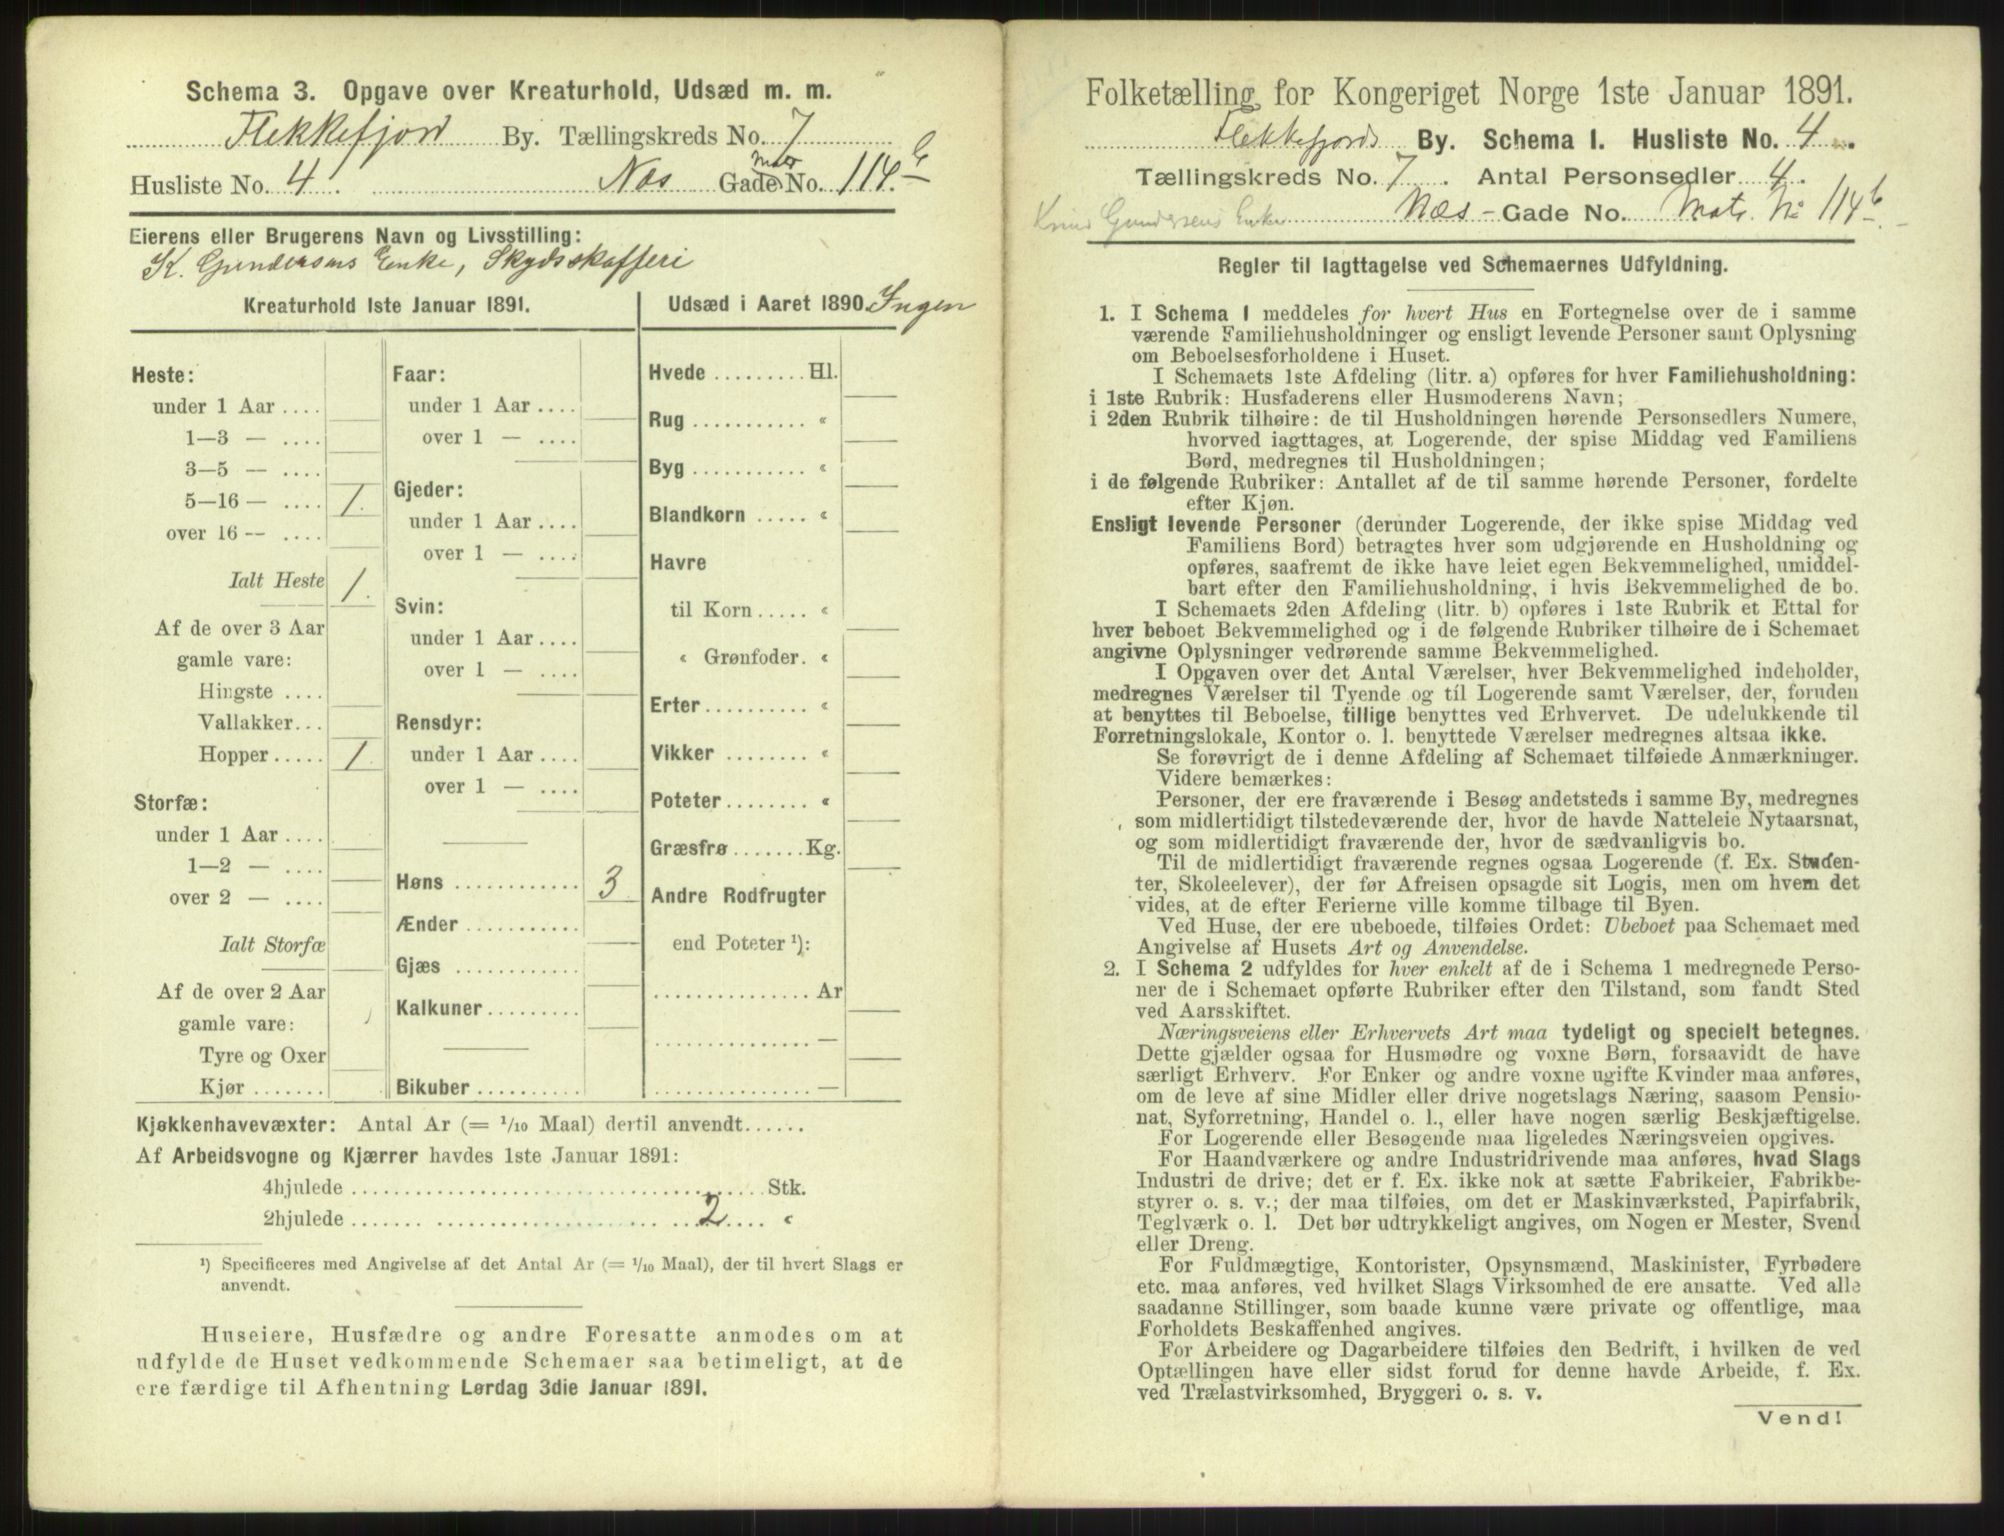 Schema 3. Opgave over Kreaturhold, Udsæd m. m.
Flekkefjord By. Tællingskreds No. 7
Husliste No. 4. Næs Gade Matr No. 114 b
Eierens eller Brugerens Navn og Livsstilling:
K. Gundersens Enke, Skydsskafferi
Kreaturhold 1ste Januar 1891.
Heste:
under 1 Aar ....
1—3 — ....
3—5 — ....
5—16 — .... 1.
over 16 — ....
Ialt Heste 1.
Af de over 3 Aar
gamle vare:
Hingste ....
Vallakker...
Hopper ..... 1.
Storfæ:
under 1 Aar ....
1—2 — ....
over 2 — ....
Ialt Storfæ
Af de over 2 Aar
gamle vare:
Tyre og Oxer
Kjør .......
Faar:
under 1 Aar ....
over 1 — ....
Gjeder:
under 1 Aar ....
over 1 — ....
Svin:
under 1 Aar ....
over 1 — ....
Rensdyr:
under 1 Aar ....
over 1 — ....
Høns ............ 3
Ænder ...........
Gjæs ............
Kalkuner .........
Bikuber ..........
Udsæd i Aaret 1890. Ingen
Hvede ......... Hl.
Rug ........... "
Byg ........... "
Blandkorn ..... "
Havre
til Korn ..... "
" Grønfoder. "
Erter .......... "
Vikker ........ "
Poteter ........ "
Græsfrø ....... Kg.
Andre Rodfrugter
end Poteter ¹):
............... Ar
............... —
............... —
Kjøkkenhavevæxter: Antal Ar (= 1/10 Maal) dertil anvendt......
Af Arbeidsvogne og Kjærrer havdes 1ste Januar 1891:
4hjulede ........................................ Stk.
2hjulede ........................ 2 ..... "
¹) Specificeres med Angivelse af det Antal Ar (= 1/10 Maal), der til hvert Slags er
anvendt.
Huseiere, Husfædre og andre Foresatte anmodes om at
udfylde de Huset vedkommende Schemaer saa betimeligt, at de
ere færdige til Afhentning Lørdag 3die Januar 1891.
Folketælling for Kongeriget Norge 1ste Januar 1891.
Flekkefjords By. Schema I. Husliste No. 4
Tællingskreds No. 7. Antal Personsedler 4.
Knud Gundersens Enke Næs - Gade No. Matr. No 114 b.
Regler til Iagttagelse ved Schemaernes Udfyldning.
1. I Schema I meddeles for hvert Hus en Fortegnelse over de i samme
værende Familiehusholdninger og ensligt levende Personer samt Oplysning
om Beboelsesforholdene i Huset.
I Schemaets 1ste Afdeling (litr. a) opføres for hver Familiehusholdning:
i 1ste Rubrik: Husfaderens eller Husmoderens Navn;
i 2den Rubrik tilhøire: de til Husholdningen hørende Personsedlers Numere,
hvorved iagttages, at Logerende, der spise Middag ved Familiens
Bord, medregnes til Husholdningen;
i de følgende Rubriker: Antallet af de til samme hørende Personer, fordelte
efter Kjøn.
Ensligt levende Personer (derunder Logerende, der ikke spise Middag ved
Familiens Bord) betragtes hver som udgjørende en Husholdning og
opføres, saafremt de ikke have leiet egen Bekvemmelighed, umiddel-
bart efter den Familiehusholdning, i hvis Bekvemmelighed de bo.
I Schemaets 2den Afdeling (litr. b) opføres i 1ste Rubrik et Ettal for
hver beboet Bekvemmelighed og i de følgende Rubriker tilhøire de i Schemaet
angivne Oplysninger vedrørende samme Bekvemmelighed.
I Opgaven over det Antal Værelser, hver Bekvemmelighed indeholder,
medregnes Værelser til Tyende og til Logerende samt Værelser, der, foruden
at benyttes til Beboelse, tillige benyttes ved Erhvervet. De udelukkende til
Forretningslokale, Kontor o. l. benyttede Værelser medregnes altsaa ikke.
Se forøvrigt de i denne Afdeling af Schemaet tilføiede Anmærkninger.
Videre bemærkes:
Personer, der ere fraværende i Besøg andetsteds i samme By, medregnes
som midlertidigt tilstedeværende der, hvor de havde Natteleie Nytaarsnat,
og som midlertidigt fraværende der, hvor de sædvanligvis bo.
Til de midlertidigt fraværende regnes ogsaa Logerende (f. Ex. Studen-
ter, Skoleelever), der før Afreisen opsagde sit Logis, men om hvem det
vides, at de efter Ferierne ville komme tilbage til Byen.
Ved Huse, der ere ubeboede, tilføies Ordet: Ubeboet paa Schemaet med
Angivelse af Husets Art og Anvendelse.
2. I Schema 2 udfyldes for hver enkelt af de i Schema 1 medregnede Perso-
ner de i Schemaet opførte Rubriker efter den Tilstand, som fandt Sted
ved Aarsskiftet.
Næringsveiens eller Erhvervets Art maa tydeligt og specielt betegnes.
Dette gjælder ogsaa for Husmødre og voxne Børn, forsaavidt de have
særligt Erhverv. For Enker og andre voxne ugifte Kvinder maa anføres,
om de leve af sine Midler eller drive nogetslags Næring, saasom Pensio-
nat, Syforretning, Handel o. l., eller have nogen særlig Beskjæftigelse.
For Logerende eller Besøgende maa ligeledes Næringsveien opgives.
For Haandværkere og andre Industridrivende maa anføres, hvad Slags
Industri de drive; det er f. Ex. ikke nok at sætte Fabrikeier, Fabrikbe-
styrer o. s. v.; der maa tilføies, om det er Maskinværksted, Papirfabrik,
Teglværk o. l. Det bør udtrykkeligt angives, om Nogen er Mester, Svend
eller Dreng.
For Fuldmægtige, Kontorister, Opsynsmænd, Maskinister, Fyrbødere
etc. maa anføres, ved hvilket Slags Virksomhed de ere ansatte. Ved alle
saadanne Stillinger, som baade kunne være private og offentlige, maa
Forholdets Beskaffenhed angives.
For Arbeidere og Dagarbeidere tilføies den Bedrift, i hvilken de ved
Optællingen have eller sidst forud for denne havde Arbeide, f. Ex.
ved Trælastvirksomhed, Bryggeri o. s. v.
Vend!